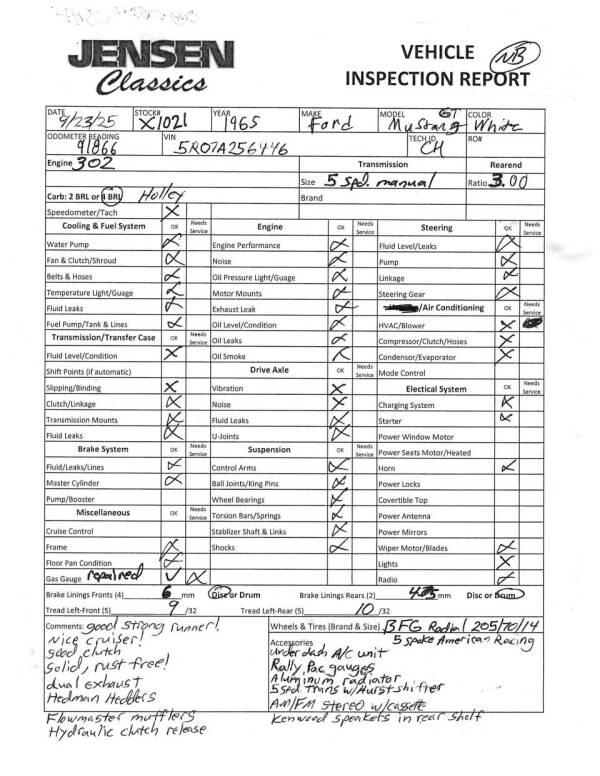 JENSEN
Classics
VEHICLE
INSPECTION REPORT
NB
DATE 9/23/25 STOCK# X1021 YEAR 1965 MAKE Ford MODEL Mustang GT COLOR White
ODOMETER READING 91866 VIN 5R07A256446 TECH ID CH RO#
Engine 302 Transmission Rearend
Size 5 spd. manual Ratio 3.00
Carb: 2 BRL or 4 BRL Holley Brand
Speedometer/Tach X
Cooling & Fuel System OK Needs Service Engine OK Needs Service Steering OK Needs Service
Water Pump X Engine Performance X Fluid Level/Leaks X
Fan & Clutch/Shroud X Noise X Pump X
Belts & Hoses X Oil Pressure Light/Guage X Linkage X
Temperature Light/Guage X Motor Mounts X Steering Gear X
Fluid Leaks X Exhaust Leak X /Air Conditioning OK Needs Service
Fuel Pump/Tank & Lines X Oil Level/Condition X HVAC/Blower X
Transmission/Transfer Case OK Needs Service Oil Leaks X Compressor/Clutch/Hoses X
Fluid Level/Condition X Oil Smoke X Condensor/Evaporator X
Shift Points (if automatic) Drive Axle OK Needs Service Mode Control
Slipping/Binding X Vibration X Electical System OK Needs Service
Clutch/Linkage X Noise X Charging System X
Transmission Mounts X Fluid Leaks X Starter X
Fluid Leaks X U-Joints X Power Window Motor
Brake System OK Needs Service Suspension OK Needs Service Power Seats Motor/Heated
Fluid/Leaks/Lines X Control Arms X Horn X
Master Cylinder X Ball Joints/King Pins X Power Locks
Pump/Booster Wheel Bearings X Covertible Top
Miscellaneous OK Needs Service Torsion Bars/Springs X Power Antenna
Cruise Control Stablizer Shaft & Links X Power Mirrors
Frame X Shocks X Wiper Motor/Blades X
Floor Pan Condition X Lights X
Gas Gauge repaired V X Radio X
Brake Linings Fronts (4) 6 mm Disc or Drum Brake Linings Rears (2) mm Disc or Drum
Tread Left-Front (5) 9 /32 Tread Left-Rear (5) 10 /32
Comments: good strong runner!
nice cruiser!
good clutch
solid, rust free!
dual exhaust
Hedman Hedders
Flowmaster mufflers
Hydraulic clutch release
Wheels & Tires (Brand & Size) BFG Radial 205/70/14
5 spoke American Racing
Accessories
Underdash A/C unit
Rally Pac gauges
Aluminum radiator
5 spd trans w/Hurst shifter
AM/FM Stereo w/cassette
Kenwood speakers in rear shelf